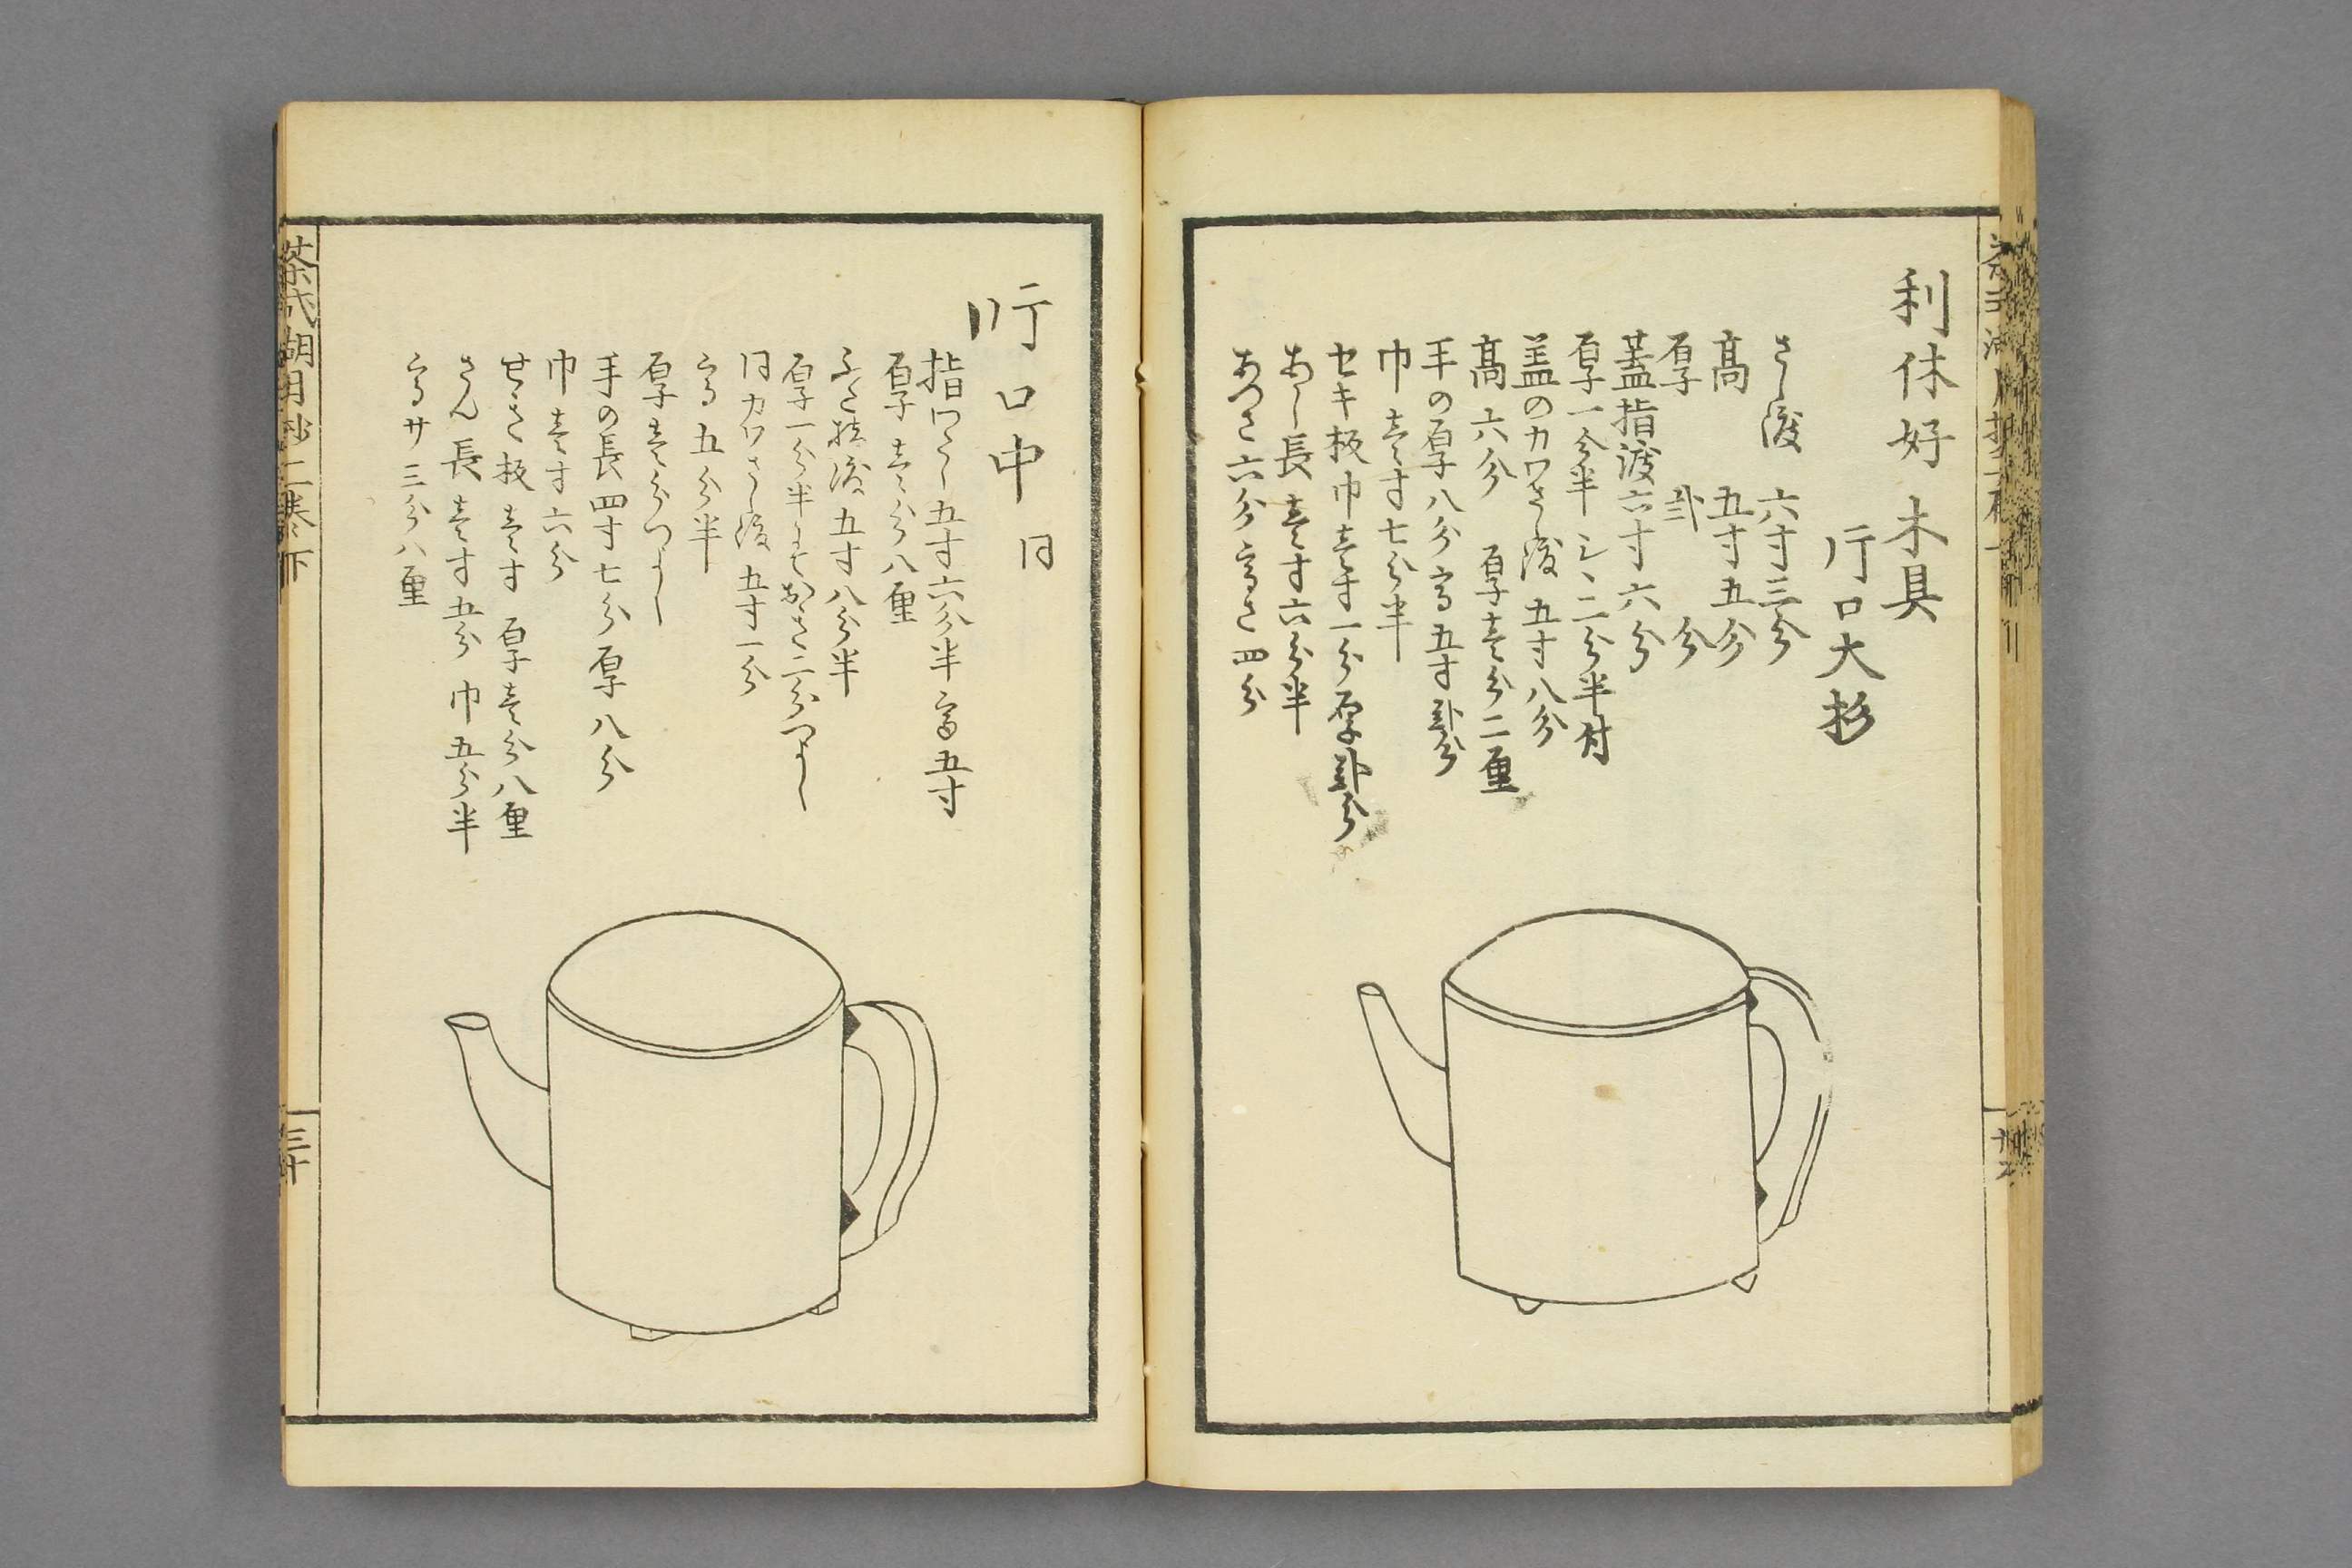 利休好 木具
片口大杉
さし渡 六寸三分
高 五寸五分
厚 弐分
蓋指渡六寸六分
厚一分半 シヽ二分半付
蓋のカワさし渡 五寸八分
高六分 厚壱分二厘
手の厚八分高五寸弐分
巾壱寸七分半
セキ板巾壱寸一分厚弐分
あし長壱寸六分半
あつさ六分高さ四分
片口中 同
指わたし五寸六分半高五寸
厚壱分八厘
ふた指渡五寸八分半
厚一分半
同カワさし渡 五寸一分
高五分半
厚壱分つよし
手の長四寸七分厚八分
巾壱寸六分
せき板壱寸 厚壱分八厘
さん長壱寸五分 巾五分半
高サ三分八厘
茶式湖月抄二巻下
三十